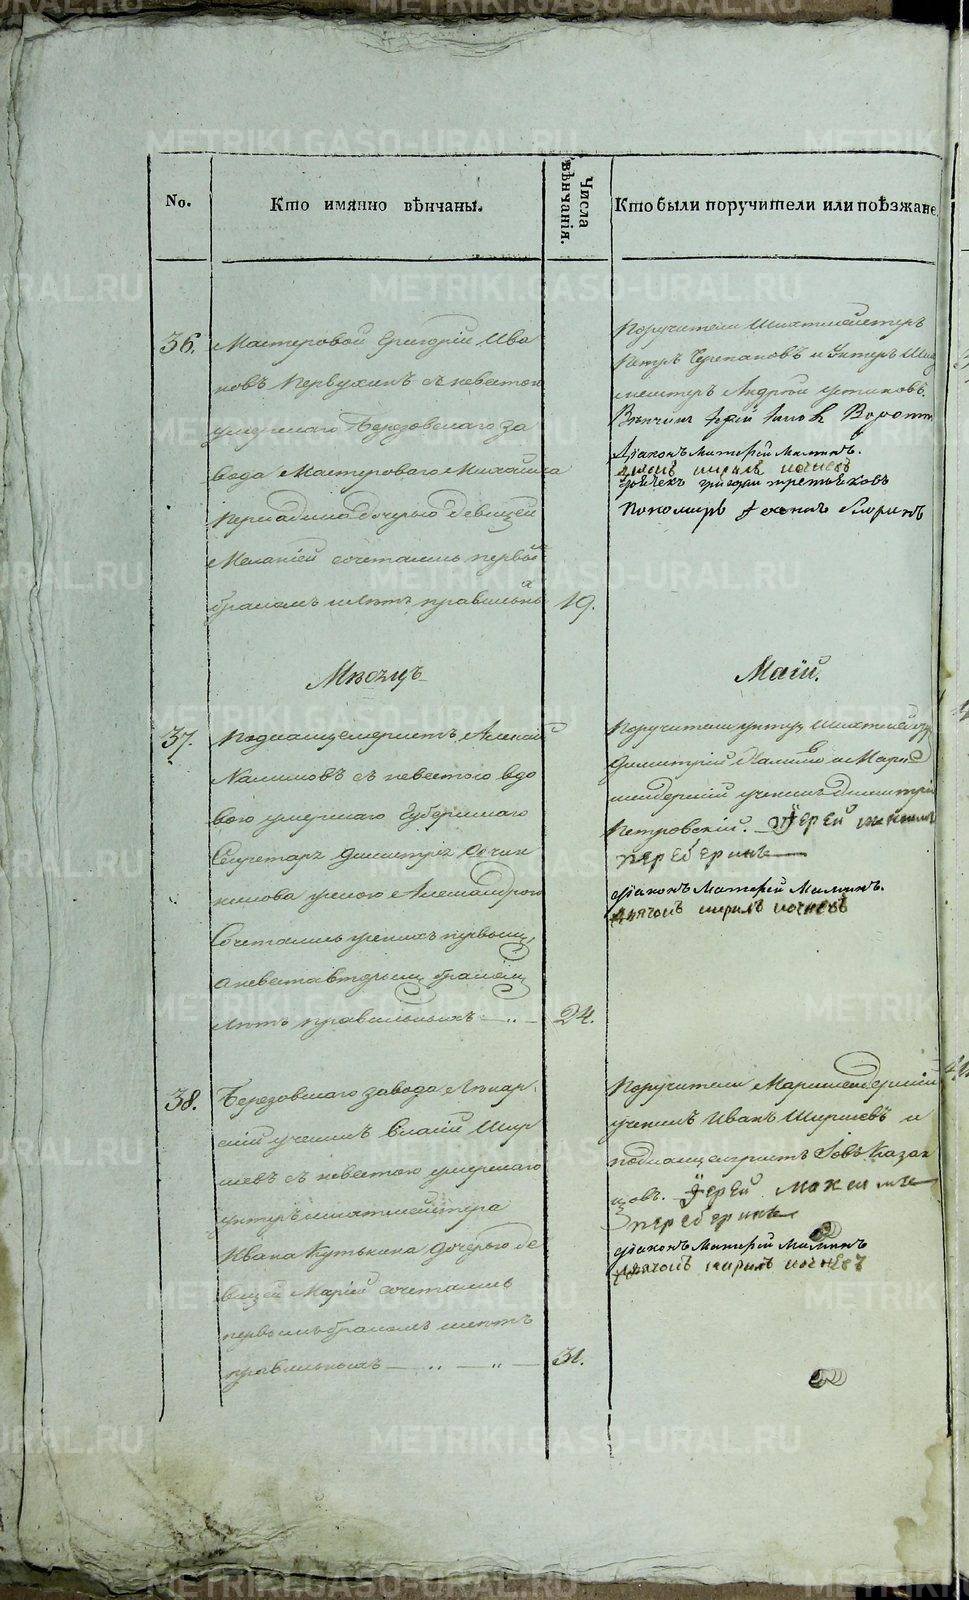 No.
Кто имянно вѣнчаны.
Числа вѣнчанія.
Кто были поручители или поѣзжане.
36.
Мастеровой Григорій Ива
новъ Первухинъ с невестою
умершаго Березовскаго за
вода Мастероваго Михаила
дочерью девицей
Меланіей сочетались первы
бракомъ лѣтъ правильны
19.
Поручители Шихтмейстеръ
Петръ Черепановъ и Унтеръ Ших
мейстеръ Андрей Устиновъ.
Дьяконъ Матфей Малинъ.
Дьячекъ Григори Третьяковъ
Пономарь
Мѣсяцъ
Маій.
37.
Подканцеляристъ Алексей
Калиновъ с невестою вдо
вою умершаго Губернскаго
Секретаря Димитрія Овчин
никова женою Александрою
Сочетались женихъ первымъ,
а невеста вторым бракомъ
лѣтъ правильныхъ
24.
Поручители унтер Шихтмейстер
Димитрій и Марк
шейдерскій ученикъ Димитрій
Петровскій. Іерей Максимъ
Переберинъ
Дьяконъ Матфей Малинъ.
Дьячокъ Кирилъ
38.
Березовскаго завода Лѣкар
скій ученикъ Власій Шир
шевъ с невестою умершаго
унтеръ шихтмейстера
Ивана Кутькина дочерью де
вицей Маріей сочетались
первымъ бракомъ лѣтъ
правильныхъ
31.
Поручители Маркшейдерскій
ученикъ Иванъ Ширшевъ и
подканцеляристъ Іовъ Казан
цовъ. Іерей Максимъ
Переберинъ
Дьяконъ Матфей Малинъ
Дьячокъ Кирилъ
METRIKI.GASO-URAL.RU